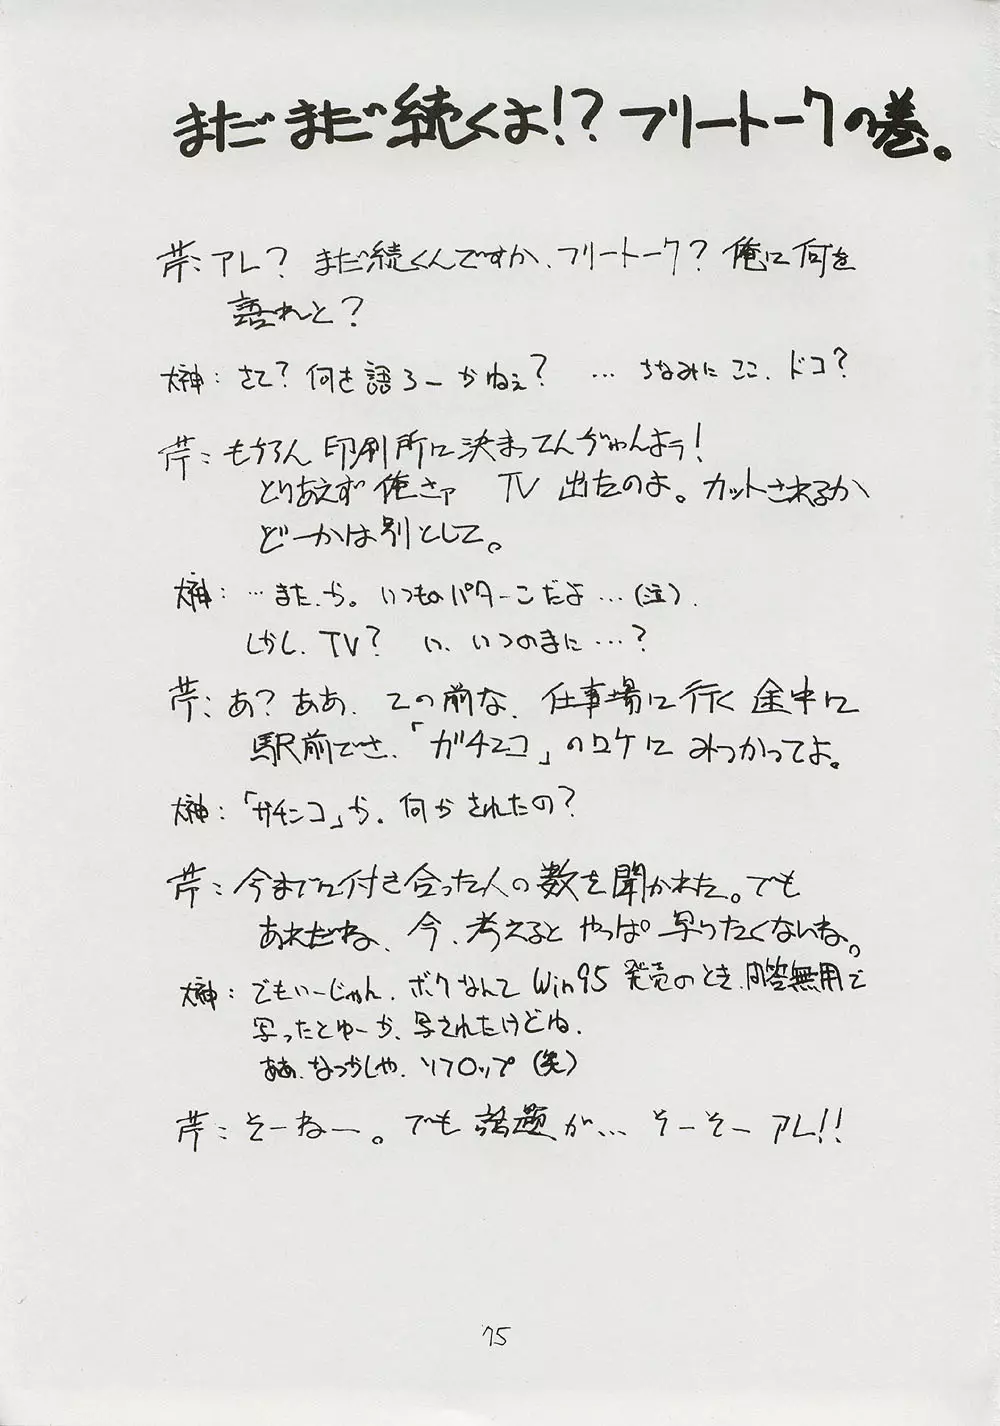 まだまだ続くよ!? フリートークの巻。
芹:アレ? まだ続くんですか、フリートーク? 俺に何を
語れと?
大神:さて? 何を語ろーかねぇ? … ちなみにここ、ドコ?
芹:もちろん 印刷所に決まってんぢゃんよぅ!
とりあえず俺さァ TV 出たのよ。カットされるか
どーかは別として。
大神:…また、か。いつものパターンだよ…(泣)。
しかし、TV? い、いつのまに…?
芹:あ? ああ、この前な、仕事場に行く途中に
駅前でさ、「ガチンコ」のロケに みつかってよ。
大神:「ガチンコ」か。何かされたの?
芹:今までに付き合った人の数を聞かれた。でも
あれだね、今、考えると やっぱ 写りたくないね。
大神:でもいーじゃん、ボクなんて Win95 発売のとき、問答無用で
写ったとゆーか、写されたけどね。
ああ、なつかしや、ソフロップ(笑)
芹:そーねー。でも話題が… そーそーアレ!!
75